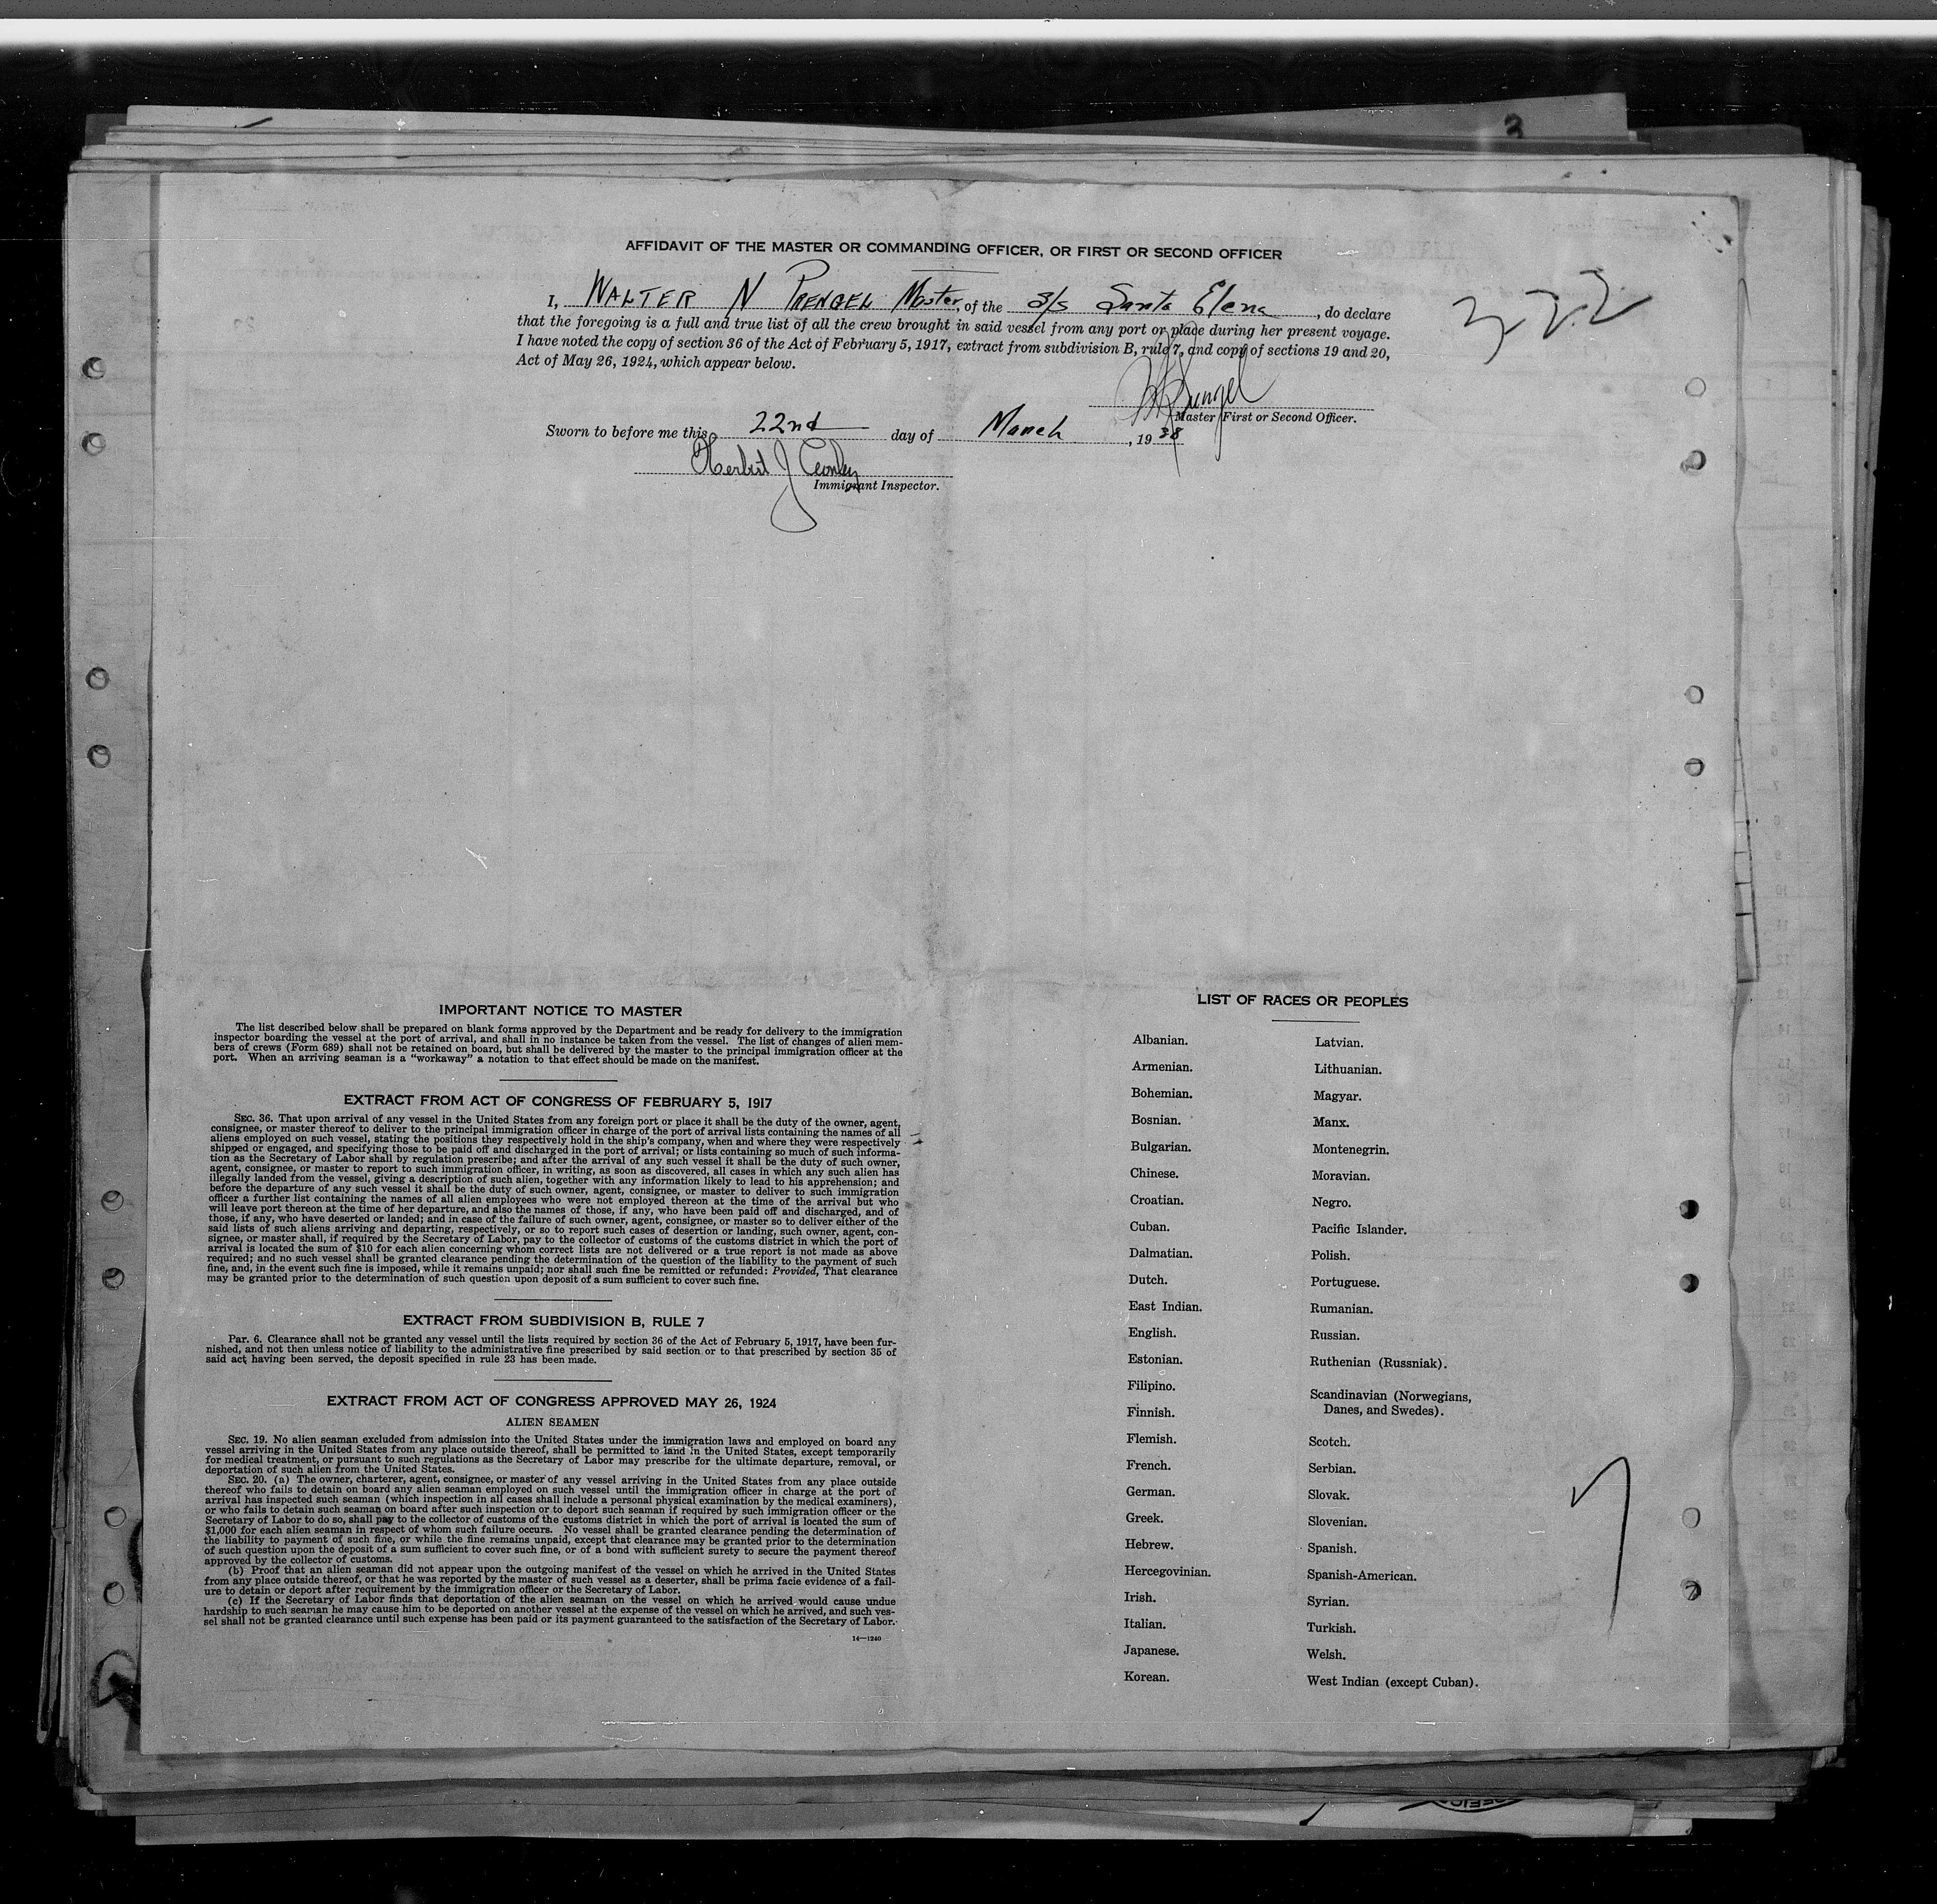 AFFIDAVIT OF THE MASTER OR COMMANDING OFFICER, OR FIRST OR SECOND OFFICER
I, WALTER N PRENGEL Master, of the S/S Santa Elena, do declare
that the foregoing is a full and true list of all the crew brought in said vessel from any port or place during her present voyage.
I have noted the copy of section 36 of the Act of February 5, 1917, extract from subdivision B, rule 7, and copy of sections 19 and 20,
Act of May 26, 1924, which appear below.
Master First or Second Officer.
Sworn to before me this 22nd day of March, 1938
Herbert J
Immigrant Inspector.
IMPORTANT NOTICE TO MASTER
The list described below shall be prepared on blank forms approved by the Department and be ready for delivery to the immigration
inspector boarding the vessel at the port of arrival, and shall in no instance be taken from the vessel. The list of changes of alien mem-
bers of crews (Form 689) shall not be retained on board, but shall be delivered by the master to the principal immigration officer at the
port. When an arriving seaman is a "workaway" a notation to that effect should be made on the manifest.
EXTRACT FROM ACT OF CONGRESS OF FEBRUARY 5, 1917
SEC. 36. That upon arrival of any vessel in the United States from any foreign port or place it shall be the duty of the owner, agent,
consignee, or master thereof to deliver to the principal immigration officer in charge of the port of arrival lists containing the names of all
aliens employed on such vessel, stating the positions they respectively hold in the ship's company, when and where they were respectively
shipped or engaged, and specifying those to be paid off and discharged in the port of arrival; or lists containing so much of such informa-
tion as the Secretary of Labor shall by regulation prescribe; and after the arrival of any such vessel it shall be the duty of such owner,
agent, consignee, or master to report to such immigration officer, in writing, as soon as discovered, all cases in which any such alien has
illegally landed from the vessel, giving a description of such alien, together with any information likely to lead to his apprehension; and
before the departure of any such vessel it shall be the duty of such owner, agent, consignee, or master to deliver to such immigration
officer a further list containing the names of all alien employees who were not employed thereon at the time of the arrival but who
will leave port thereon at the time of her departure, and also the names of those, if any, who have been paid off and discharged, and of
those, if any, who have deserted or landed; and in case of the failure of such owner, agent, consignee, or master so to deliver either of the
said lists of such aliens arriving and departing, respectively, or so to report such cases of desertion or landing, such owner, agent, con-
signee, or master shall, if required by the Secretary of Labor, pay to the collector of customs of the customs district in which the port of
arrival is located the sum of $10 for each alien concerning whom correct lists are not delivered or a true report is not made as above
required; and no such vessel shall be granted clearance pending the determination of the question of the liability to the payment of such
fine, and, in the event such fine is imposed, while it remains unpaid; nor shall such fine be remitted or refunded: Provided, That clearance
may be granted prior to the determination of such question upon deposit of a sum sufficient to cover such fine.
EXTRACT FROM SUBDIVISION B, RULE 7
Par. 6. Clearance shall not be granted any vessel until the lists required by section 36 of the Act of February 5, 1917, have been fur-
nished, and not then unless notice of liability to the administrative fine prescribed by said section or to that prescribed by section 35 of
said act having been served, the deposit specified in rule 23 has been made.
EXTRACT FROM ACT OF CONGRESS APPROVED MAY 26, 1924
ALIEN SEAMEN
SEC. 19. No alien seaman excluded from admission into the United States under the immigration laws and employed on board any
vessel arriving in the United States from any place outside thereof, shall be permitted to land in the United States, except temporarily
for medical treatment, or pursuant to such regulations as the Secretary of Labor may prescribe for the ultimate departure, removal, or
deportation of such alien from the United States.
SEC. 20. (a) The owner, charterer, agent, consignee, or master of any vessel arriving in the United States from any place outside
thereof who fails to detain on board any alien seaman employed on such vessel until the immigration officer in charge at the port of
arrival has inspected such seaman (which inspection in all cases shall include a personal physical examination by the medical examiners),
or who fails to detain such seaman on board after such inspection or to deport such seaman if required by such immigration officer or the
Secretary of Labor to do so, shall pay to the collector of customs of the customs district in which the port of arrival is located the sum of
$1,000 for each alien seaman in respect of whom such failure occurs. No vessel shall be granted clearance pending the determination of
the liability to the payment of such fine, or while the fine remains unpaid, except that clearance may be granted prior to the determination
of such question upon the deposit of a sum sufficient to cover such fine, or of a bond with sufficient surety to secure the payment thereof
approved by the collector of customs.
(b) Proof that an alien seaman did not appear upon the outgoing manifest of the vessel on which he arrived in the United States
from any place outside thereof, or that he was reported by the master of such vessel as a deserter, shall be prima facie evidence of a fail-
ure to detain or deport after requirement by the immigration officer or the Secretary of Labor.
(c) If the Secretary of Labor finds that deportation of the alien seaman on the vessel on which he arrived would cause undue
hardship to such seaman he may cause him to be deported on another vessel at the expense of the vessel on which he arrived, and such ves-
sel shall not be granted clearance until such expense has been paid or its payment guaranteed to the satisfaction of the Secretary of Labor.
14—1240
LIST OF RACES OR PEOPLES
Albanian.
Armenian.
Bohemian.
Bosnian.
Bulgarian.
Chinese.
Croatian.
Cuban.
Dalmatian.
Dutch.
East Indian.
English.
Estonian.
Filipino.
Finnish.
Flemish.
French.
German.
Greek.
Hebrew.
Hercegovinian.
Irish.
Italian.
Japanese.
Korean.
Latvian.
Lithuanian.
Magyar.
Manx.
Montenegrin.
Moravian.
Negro.
Pacific Islander.
Polish.
Portuguese.
Rumanian.
Russian.
Ruthenian (Russniak).
Scandinavian (Norwegians,
Danes, and Swedes).
Scotch.
Serbian.
Slovak.
Slovenian.
Spanish.
Spanish-American.
Syrian.
Turkish.
Welsh.
West Indian (except Cuban).